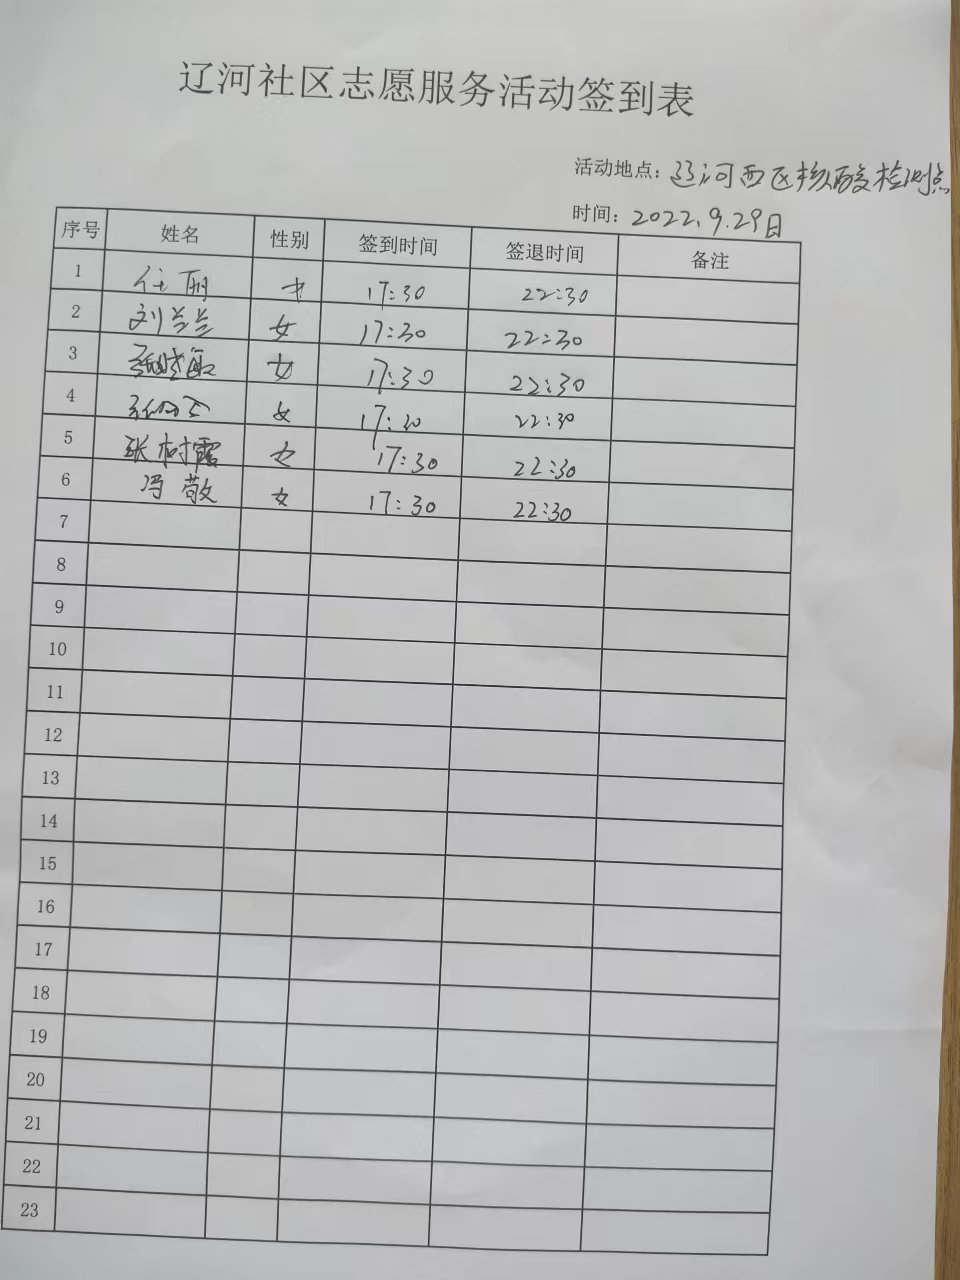 辽河社区志愿服务活动签到表
活动地点：辽河西区核酸检测点
时间：2022.9.29日
序号 姓名 性别 签到时间 签退时间 备注
1 任丽 17:30 22:30
2 刘兰兰 女 17:30 22:30
3 女 17:30 22:30
4 女 17:30 22:30
5 张树霞 女 17:30 22:30
6 冯敬 女 17:30 22:30
7
8
9
10
11
12
13
14
15
16
17
18
19
20
21
22
23